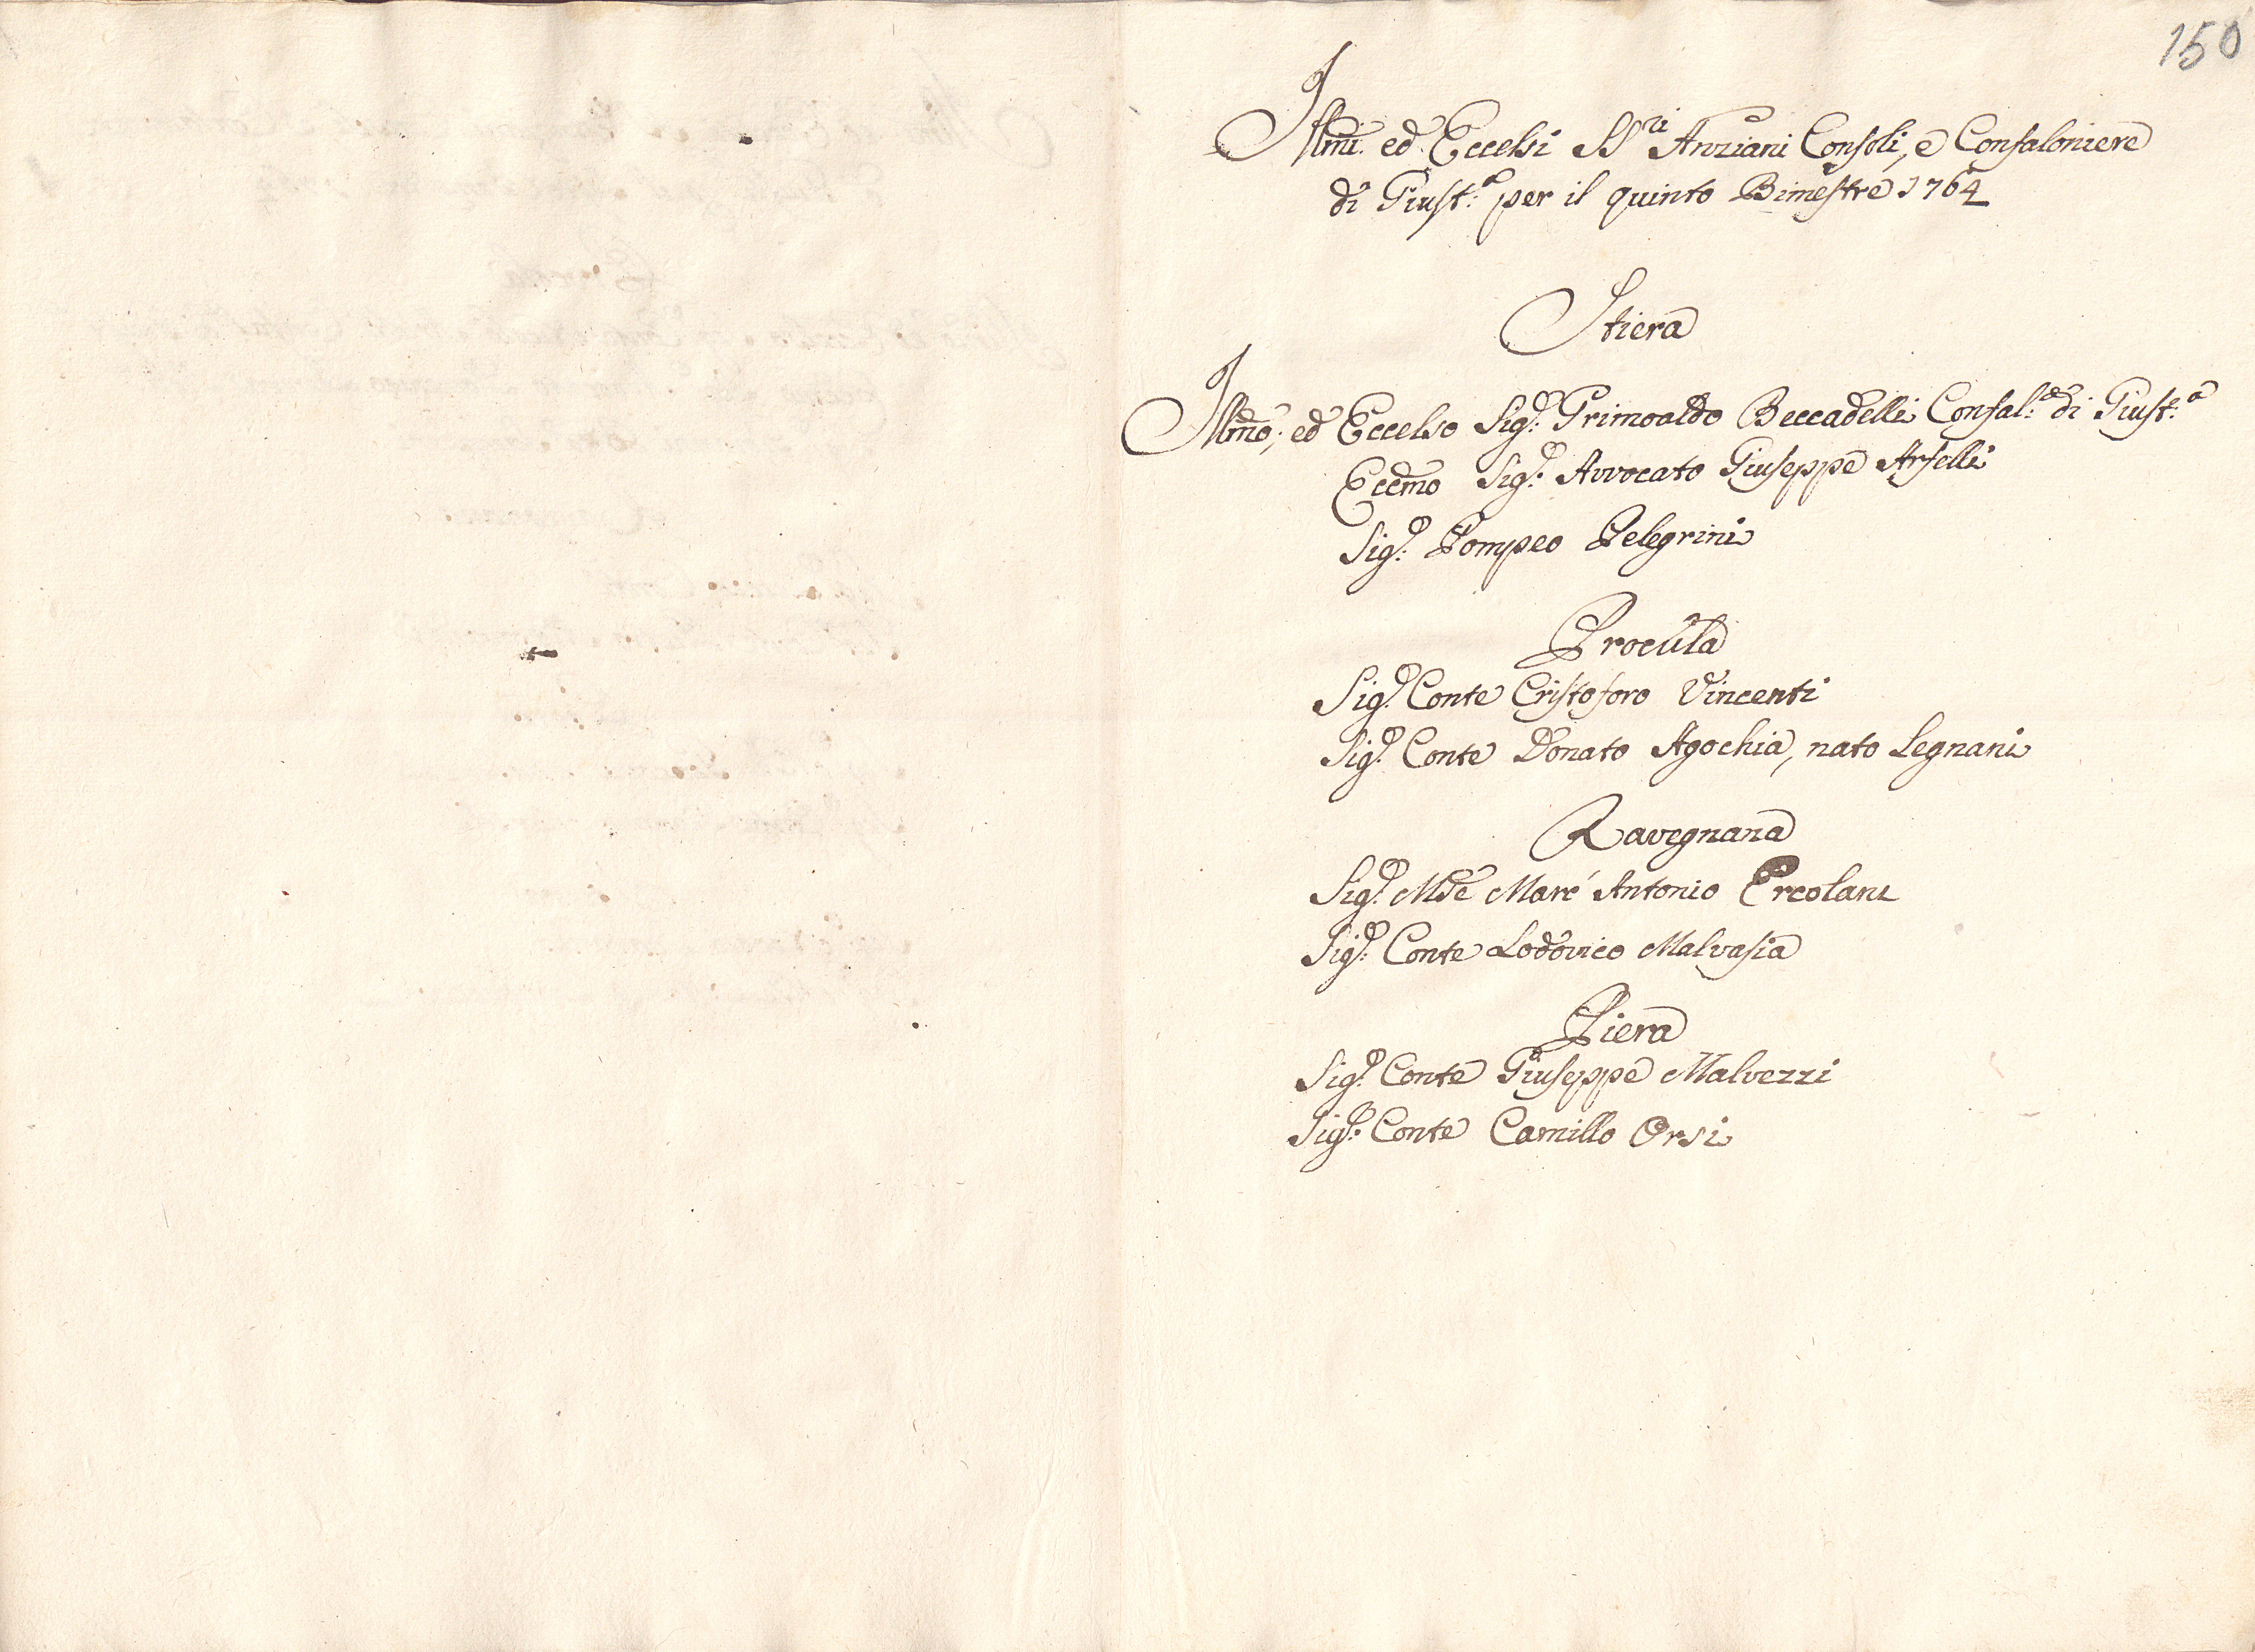 150
Illmi. ed Eccelsi SSri Anziani Consoli, e Confaloniere
di Giust:a per il quinto Bimestre 1764
Stiera
Illmo, ed Eccelso Sig:r Grimoaldo Beccadelli Confal:e di Giust:a
Eccmo Sig:r Avvocato Giuseppe Arfelli
Sig:r Pompeo Pelegrini
Procula
Sig:r Conte Cristoforo Vincenti
Sig:r Conte Donato Agochia, nato Legnani
Ravegnana
Sig:r Mse Marc' Antonio Ercolani
Sig:r Conte Lodovico Malvasia
Piera
Sig:r Conte Giuseppe Malvezzi
Sig:r Conte Camillo Orsi